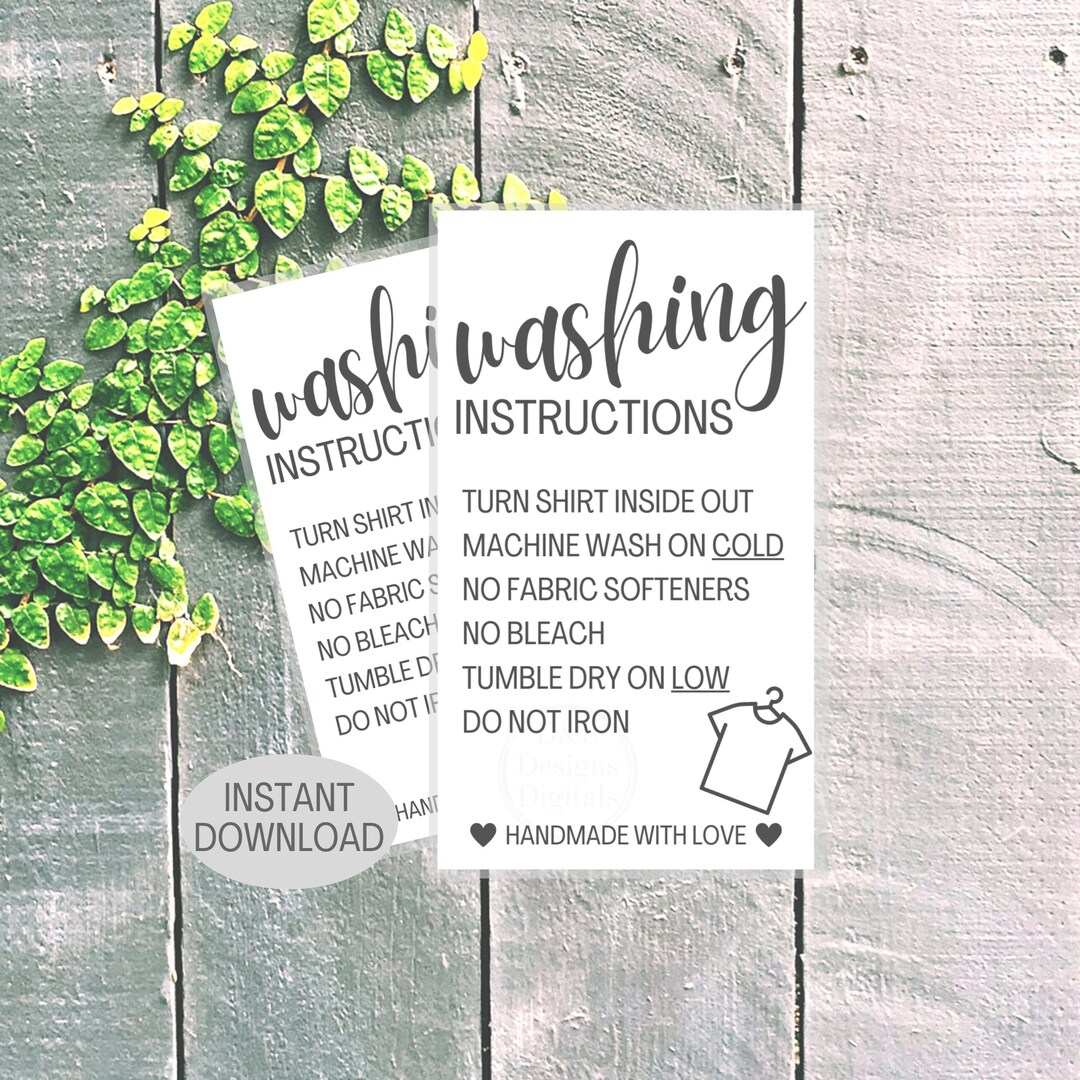 washing
INSTRUCTIONS
TURN SHIRT INSIDE OUT
MACHINE WASH ON COLD
NO FABRIC SOFTENERS
NO BLEACH
TUMBLE DRY ON LOW
DO NOT IRON
Designs
Digitals
♥ HANDMADE WITH LOVE ♥
washi
INSTRUCTI
TURN SHIRT IN
MACHINE WA
NO FABRIC S
NO BLEACH
TUMBLE D
DO NOT I
HAND
INSTANT
DOWNLOAD